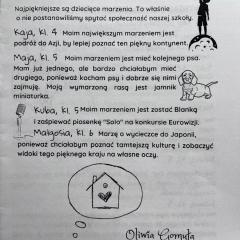 Najpiękniejsze są dziecięce marzenia. To właśnie
o nie postanowiliśmy spytać społeczność naszej szkoły.
Kaja, kl. 4 Moim największym marzeniem jest
podróż do Azji, by lepiej poznać ten piękny kontynent.
Maja, kl. 5 Moim marzeniem jest mieć kolejnego psa.
Mam już jednego, ale bardzo chciałabym mieć
drugiego, ponieważ kocham psy i dobrze się nimi
zajmuję. Moją wymarzoną rasą jest jamnik
miniaturka.
Kuba, kl. 5 Moim marzeniem jest zostać Blanką
i zaśpiewać piosenkę "Solo" na konkursie Eurowizji.
Małgosia, kl. 6 Marzę o wycieczce do Japonii,
ponieważ chciałabym poznać tamtejszą kulturę i zobaczyć
widoki tego pięknego kraju na własne oczy.
Oliwia Gomuła